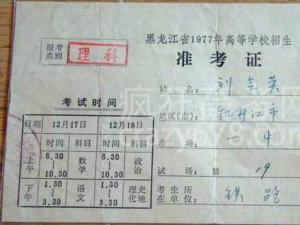 黑龙江省1977年高等学校招生
准考证
报考类别 理科
考试时间
日期 12月17日 科目 12月18日 科目
上午 8.30—10.30 数学 8.30—10.30 政治
下午 1.30—3.30 语文 1.30—3.30 理化 史地
姓名
地区(市): 牡丹江市
考场: 一中
试场: 第19
考生所在单位: 铁路